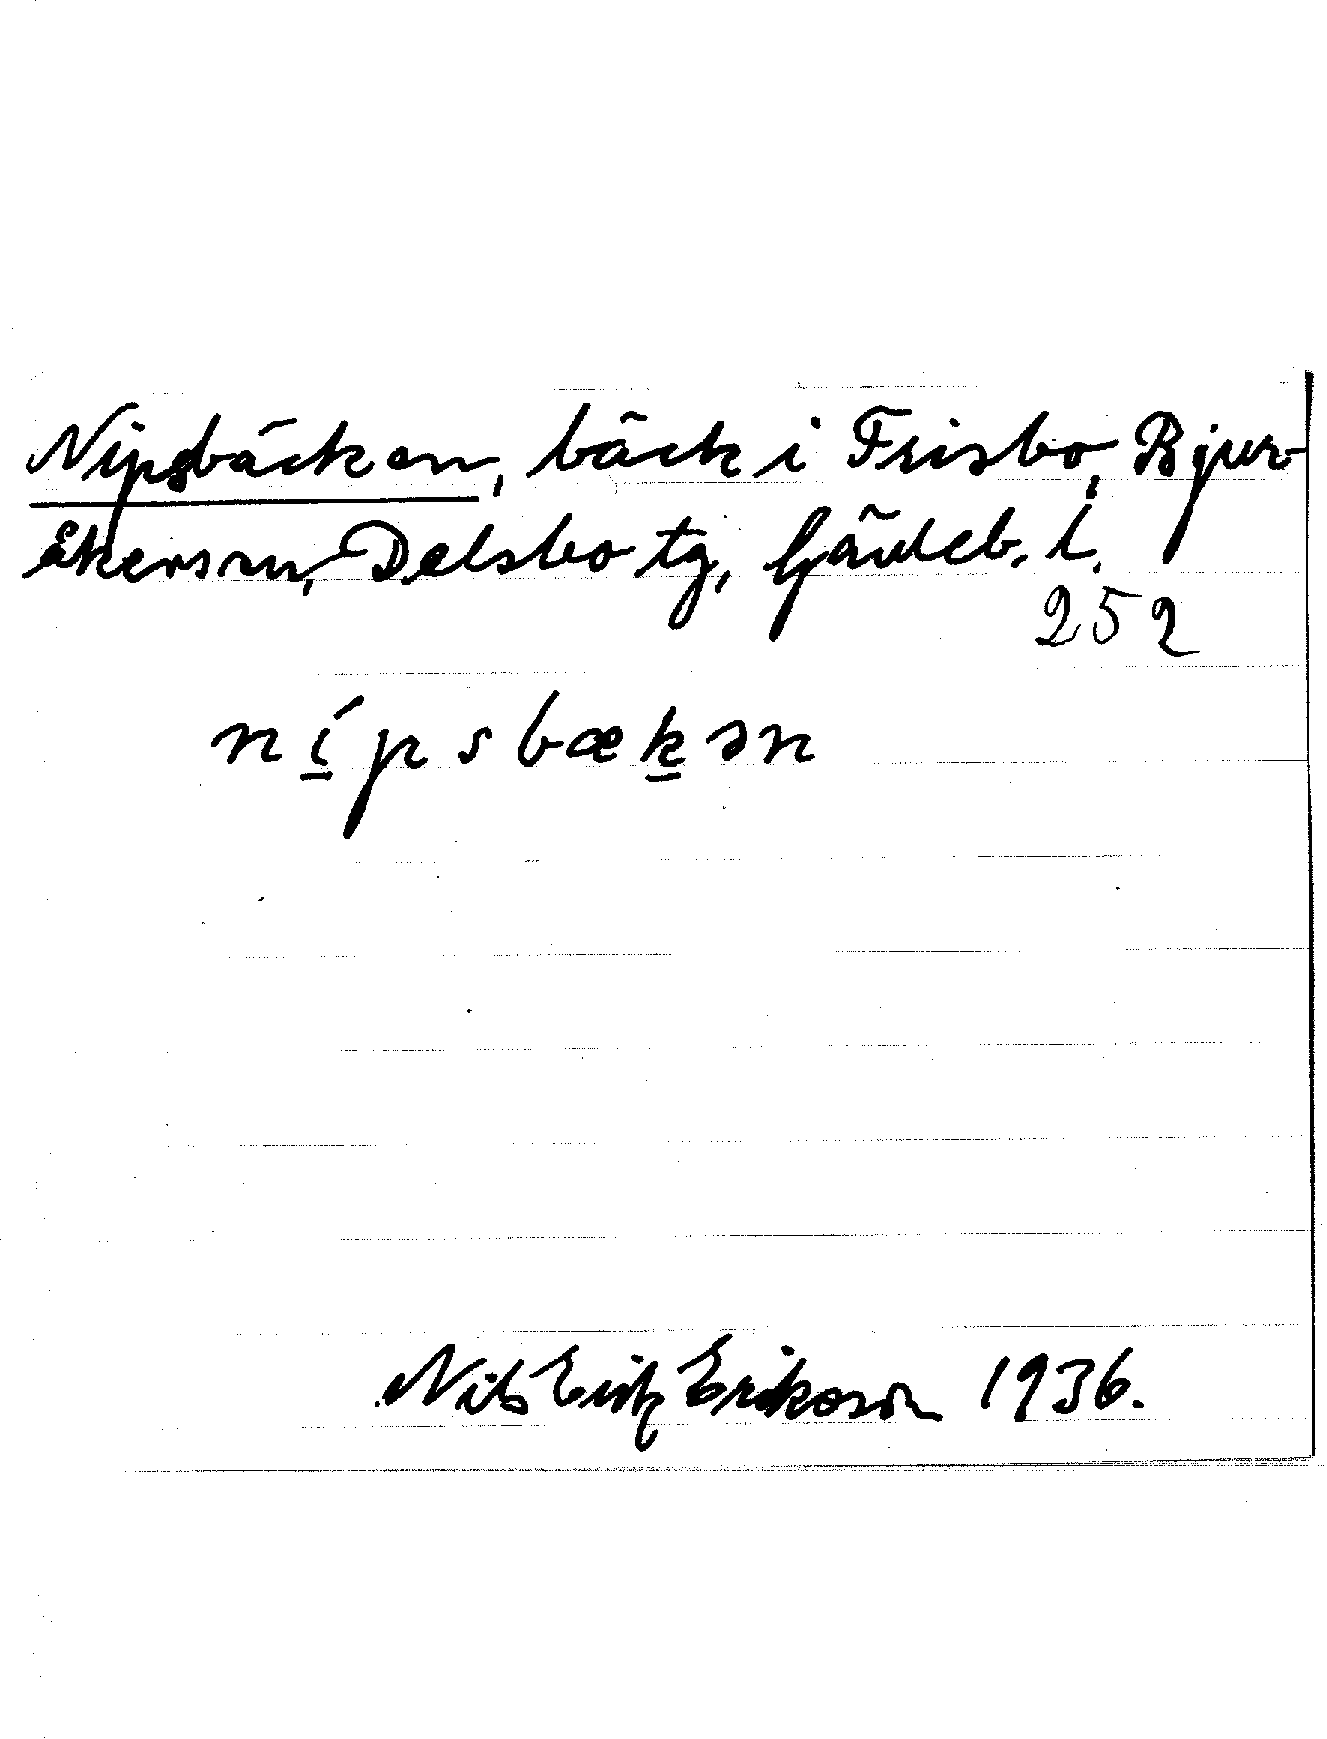 Nipsbäcken, bäck i Frisbo, Bjur-
åkers sn, Delsbo tg, Gävleb. l.
252
ní̱psbæḵən
Nils Erik Eriksson 1936.